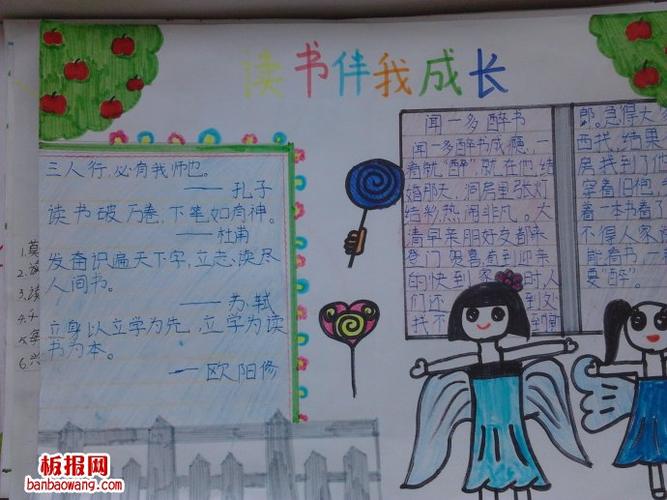 读书伴我成长
三人行，必有我师也。
——孔子
读书破万卷，下笔如有神。
——杜甫
发奋识遍天下字，立志读尽
人间书。
——苏轼
立身以立学为先，立学为读
书为本。
——欧阳修
1.莫
2.
3.读
4.千
5.
6.兴
闻一多醉书
闻一多醉书成瘾，一
看就“醉”，就在他结
婚那天，洞房里张灯
结彩，热闹非凡。大
清早亲朋好友都来
登门贺喜，直到迎亲
的快到家时，人
们还到处
找不
郎。急得大
西找，结果
房找到了他
穿着旧袍，
着一本书看了
不得人家
能看书，一
要“醉”。
板报网
banbaowang.com